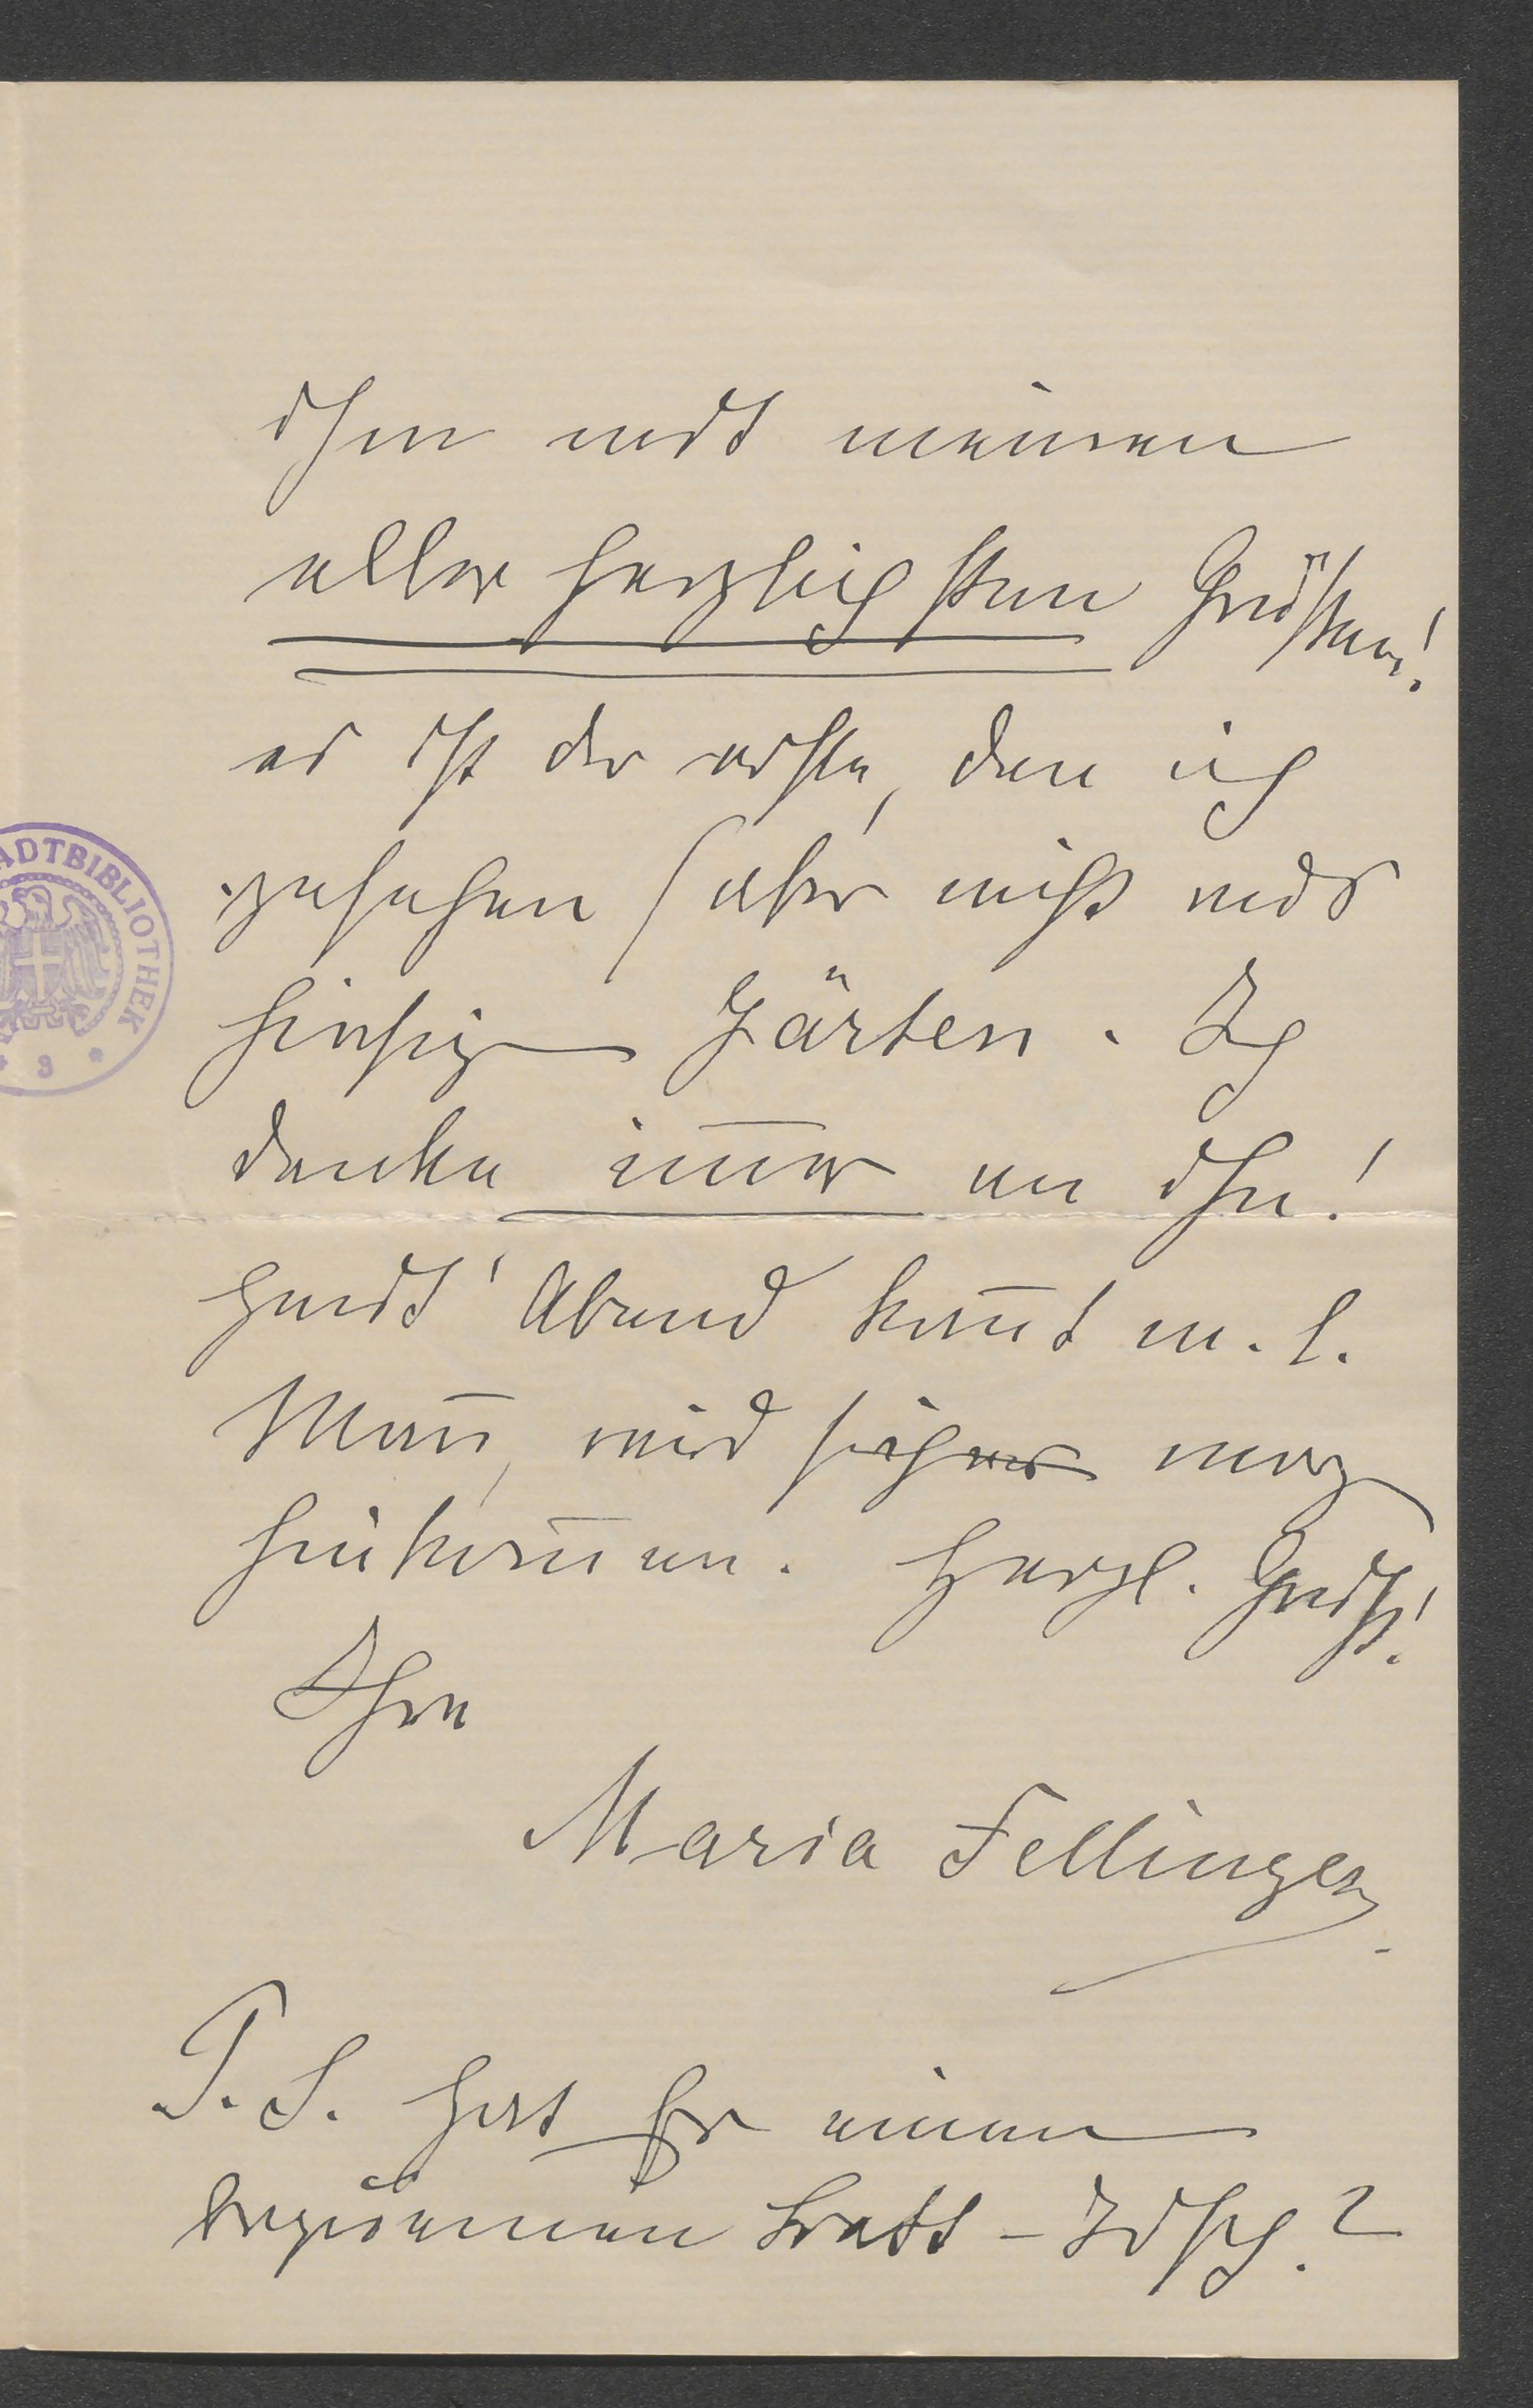 ihm mit meinen
allerherzlichsten Grüßen!
es ist der erste, den ich
gesehen (aber nicht aus
hiesigen Gärten. Ich
denke im̅er an ihn!
Heut' Abend kom̅t m. l.
Man̅, wird sicher morg
hinkom̅en. Herzl. Gruß!
Ihre
Maria Fellinger
P. S. Hat Er einen
bequemen Bett-Tisch?
STADTBIBLIOTHEK